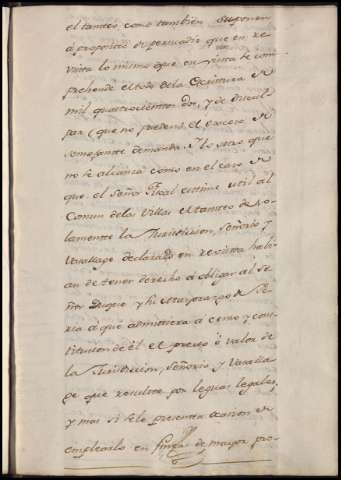 el tanteo como tambien suponen
á proposito de persuadir que en re-
vista lo mismo que en vista se com-
prehende el todo de la Escritura de
mil quatrocientos dos, y de discul-
par (que no pueden) el exceso de
semejante demanda. Y lo otro que
no se alcanza como en el caso de
que el Señor Fiscal estime util al
Comun de las Villas el tanteo de so-
lamente la Jurisdicion, Señorio y
Vasallage declarado en revista habi-
an de tener derecho á obligar al Se-
ñor Duque y su Mayorazgo de
á que admitiera á censo y cons-
titucion de él el precio ó valor de
la Jurisdicion, Señorio y Vasalla-
ge que resultase por leguas legales,
y mas si se le presenta ocasion de
emplearlo en finca de mayor pro-